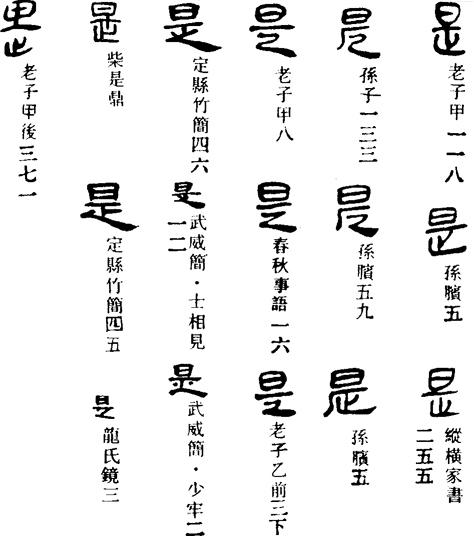 是 老子甲一一八
是 孫臏五
是 縱橫家書二五五
是 孫子一三三
是 孫臏五九
是 孫臏五
是 老子甲八
是 春秋事語一六
是 老子乙前三下
是 定縣竹簡四六
是 武威簡·士相見一二
是 武威簡·少牢二
是 柴是鼎
是 定縣竹簡四五
是 龍氏鏡三
是 老子甲後三七一